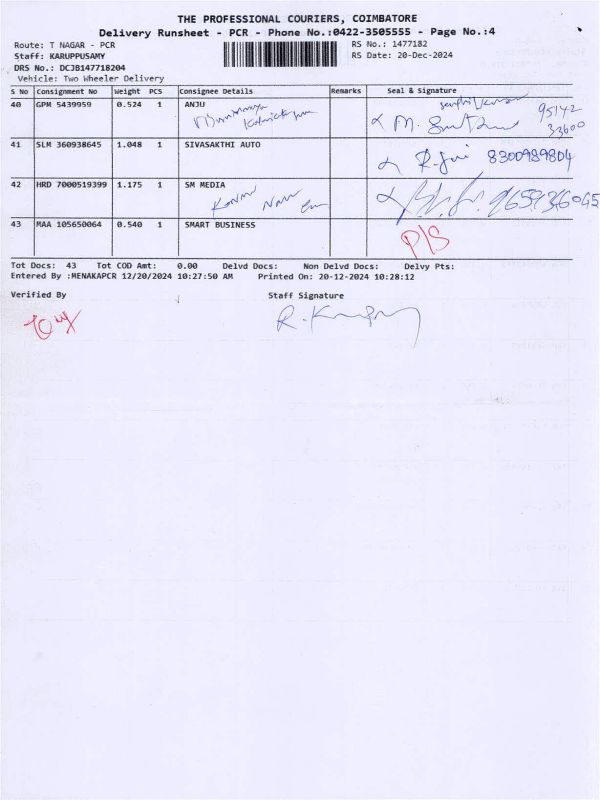 THE PROFESSIONAL COURIERS, COIMBATORE
Delivery Runsheet - PCR - Phone No.:0422-3505555 - Page No.:4
Route: T NAGAR - PCR RS No.: 1477182
Staff: KARUPPUSAMY RS Date: 20-Dec-2024
DRS No.: DCJB147718204
Vehicle: Two Wheeler Delivery
S No Consignment No Weight PCS Consignee Details Remarks Seal & Signature
40 GPM 5439959 0.524 1 ANJU
95142
33600
41 SLM 360938645 1.048 1 SIVASAKTHI AUTO
8300989804
42 HRD 7000519399 1.175 1 SM MEDIA
43 MAA 105650064 0.540 1 SMART BUSINESS
P/S
Tot Docs: 43 Tot COD Amt: 0.00 Delvd Docs: Non Delvd Docs: Delvy Pts:
Entered By :MENAKAPCR 12/20/2024 10:27:50 AM Printed On: 20-12-2024 10:28:12
Verified By Staff Signature